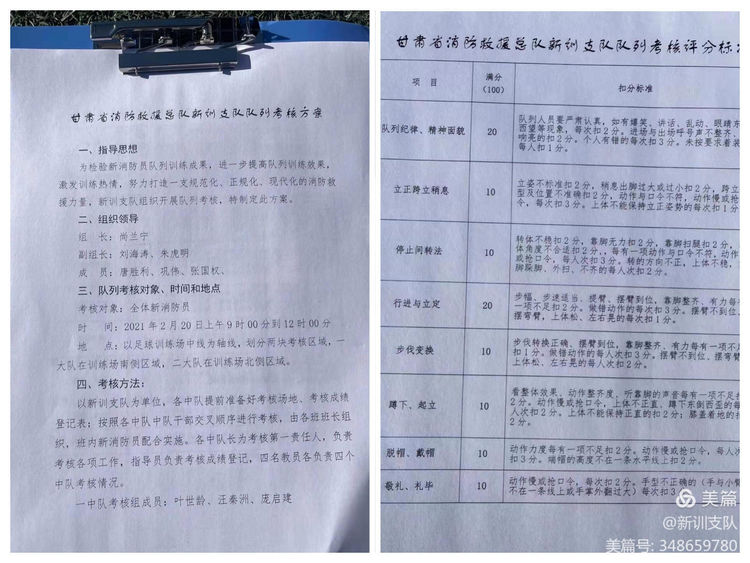 甘肃省消防救援总队新训支队队列考核方案
一、指导思想
为检验新消防员队列训练成果，进一步提高队列训练效果，
激发训练热情，努力打造一支规范化、正规化、现代化的消防救
援力量，新训支队组织开展队列考核，特制定此方案。
二、组织领导
组　长：尚兰宁
副组长：刘海涛、朱虎明
成　员：唐胜利、巩伟、张国权、
三、队列考核对象、时间和地点
考核对象：全体新消防员
时　间：2021年2月20日上午9时00分到12时00分
地　点：以足球训练场中线为轴线，划分两块考核区域，一
大队在训练场南侧区域，二大队在训练场北侧区域。
四、考核方法：
以新训支队为单位，各中队提前准备好考核场地、考核成绩
登记表；按照各中队中队干部交叉顺序进行考核，由各班班长组
织，班内新消防员配合实施。各中队长为考核第一责任人，负责
考核各项工作，指导员负责考核成绩登记，四名教员各负责四个
中队考核情况。
一中队考核组成员：叶世龄、汪秦洲、庞启建
甘肃省消防救援总队新训支队队列考核评分标
项　目
满分
（100）
扣分标准
队列纪律、精神面貌
20
队列人员要严肃认真，如有爆笑、讲话、乱动、眼睛东
西望等现象，每次扣2分。进场与出场呼号声不整齐、
响亮的扣2分。个人有错的每次扣3分。未按要求着装
每人扣1分。
立正跨立稍息
10
立姿不标准扣2分，稍息出脚过大或过小扣2分，跨立
型及位置不准确扣2分，动作与口令不符，动作慢或抢
令，每次扣3分。上体不能保持立正姿势的每次扣1分
停止间转法
10
转体不稳扣2分，靠脚无力扣2分，靠脚扫腿扣2分，
体角度不合适扣2分，每有一项动作与口令不符，动作
或抢口令，每人次扣3分。转的方向不正，上体不稳，
脚跺脚、外扫、不齐的每人次扣1分。
行进与立定
20
步幅、步速适当、提臂、摆臂到位，靠脚整齐、有力每
一项不足扣2分。做错动作的每人次扣3分。摆臂不到位、
摆弯臂，上体松、左右晃的每次扣1分。
步伐变换
10
步伐转换正确、摆臂到位，靠脚整齐、有力每有一项不足
扣1分。做错动作的每人次扣3分。摆臂不到位、摆弯臂
上体松、左右晃的每人次扣1分。
蹲下、起立
10
看整体效果、动作整齐度、听靠脚的声音每有一项不足扣
2分。动作慢或抢口令，上体不正直、蹲下东倒西歪的每
人次扣2分。上体不能保持正直的扣2分；膝盖着地的扣
脱帽、戴帽
10
动作力度每有一项不足扣2分。动作慢或抢口令，每人次
扣3分。端帽的高度不在一条水平线上扣2分。
敬礼、礼毕
10
动作慢或抢口令，每次扣2分。手型不正确的（手与小臂
不在一条线上或手掌外翻过大）每次扣3
美篇
@新训支队
美篇号: 348659780